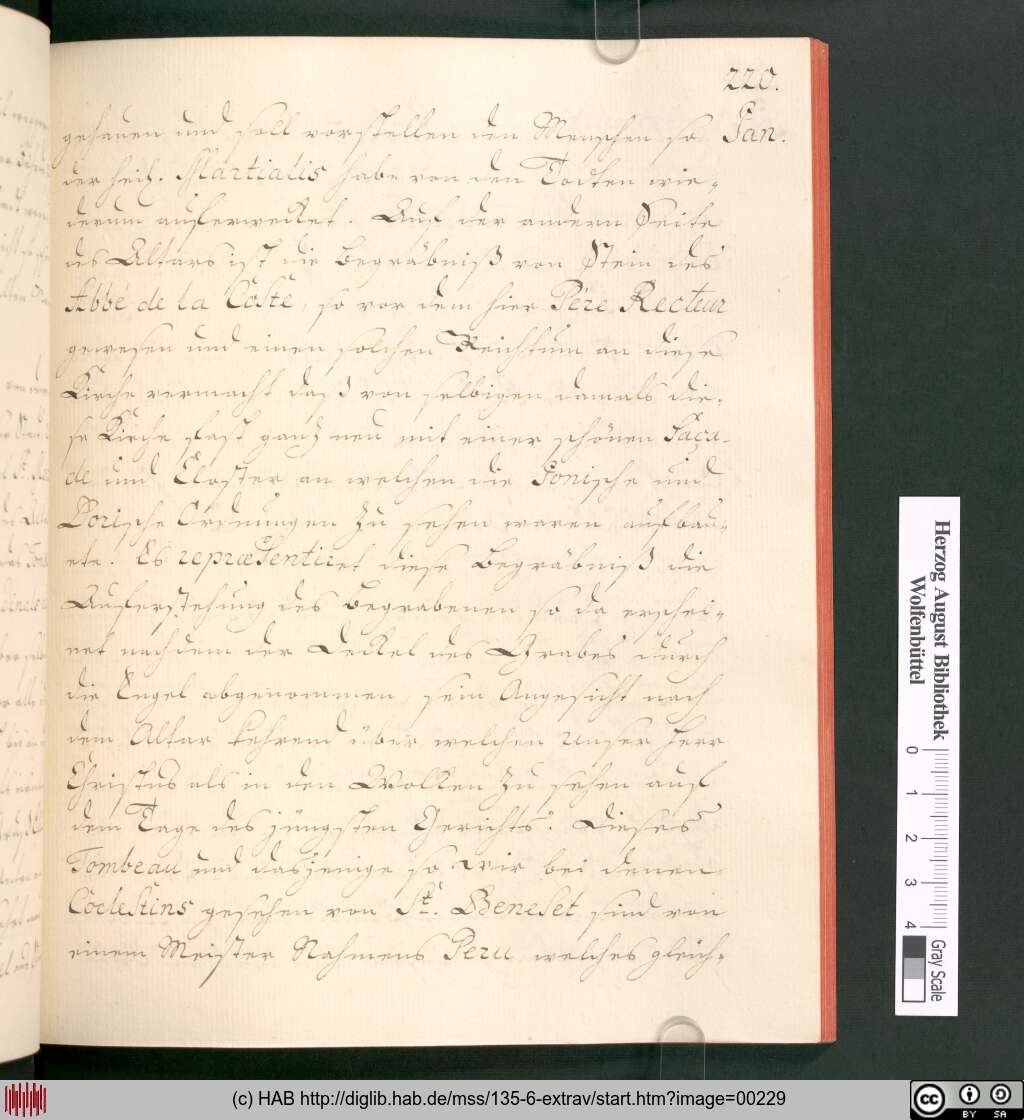 220.
Jan.
gehauen und soll vorstellen den Menschen so
der heil. Martialis habe von den Todten wie-
derum auferwecket. Auf der andern Seite
des Altars ist die Begräbniß von Stein des
Abbé de la Coste, so vor dem hier Père Recteur
gewesen und einen solchen Reichtum an diese
Kirche vermacht daß von selbigen damals die-
se Kirche fast ganz neu mit einer schönen Faça-
de und Closter an welchen die Ionische und
Dorische Ordnungen zu sehen waren, aufbau-
ete. Es repræsentiret diese Begräbniß die
Auferstehung des Begrabenen so da erschei-
net nachdem der Deckel des Grabes durch
die Engel abgenommen, sein Angesicht nach
dem Altar kehrend über welchen unser Herr
Christus als in den Wolken zu sehen auf
dem Tage des jüngsten Gerichts. Dieses
Tombeau und dasjenige so wir bei denen
Coelestins gesehen von St. Beneset sind von
einem Meister Nahmens Peru, welches gleich-
Herzog August Bibliothek
Wolfenbüttel
0 1 2 3 4
Gray Scale
(c) HAB http://diglib.hab.de/mss/135-6-extrav/start.htm?image=00229
cc BY SA